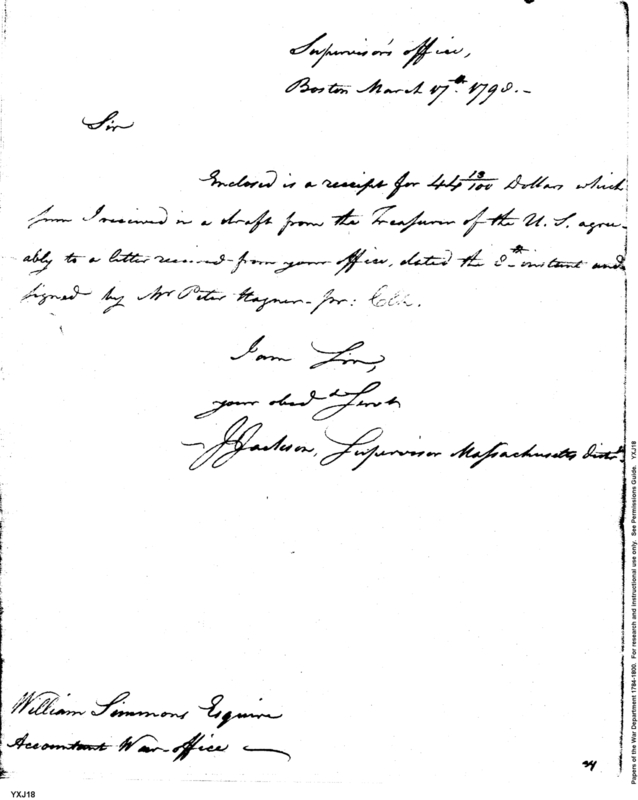 Supervisor's office,
Boston March 17th. 1798.-
Sir
Enclosed is a receipt for 44 13/100 Dollars which
sum I received in a draft from the Treasurer of the U.S. agre-
ably to a letter received from your office, dated the 8th instant and
signed by Mr Peter Hagner - Jnr: Clk.
I am Sir,
your obedt Servt
J Jackson, Supervisor Massachusetts distrt.
William Simmons Esquire
Accountant War office
24
YXJ18
Papers of the War Department 1784-1800. For research and instructional use only. See Permissions Guide. YXJ18